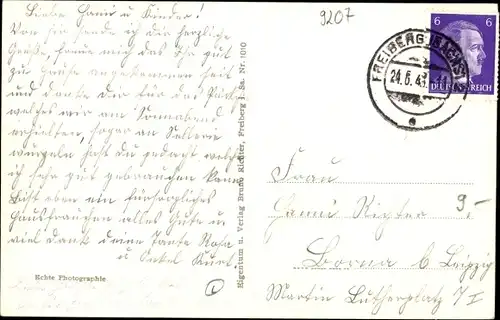 Liebe Hanni u Kinder!
Von hier sende ich die herzliche
Grüße, freue mich das Ihr gut
zu Hause angekommen seit
und danke Dir für das Päckchen
welches wir am Sonnabend
erhielten, sogar an Sellerie
wurzeln hast du gedacht, welche
ich sehr gut gebrauchen kann
bist eben ein fürsorgliches
Hausfrauchen alles Gute u
viel Dank deine Tante Rosa
u Onkel Kurt.
Echte Photographie
Eigentum u. Verlag Bruno Richter, Freiberg i. Sa. Nr. 1010
9207
FREIBERG (SACHS)
24.6.43
6 6
DEUTSCHES REICH
Frau
Hanni Richter
9-
Borna b Leipzig
Martin Lutherplatz 7/I